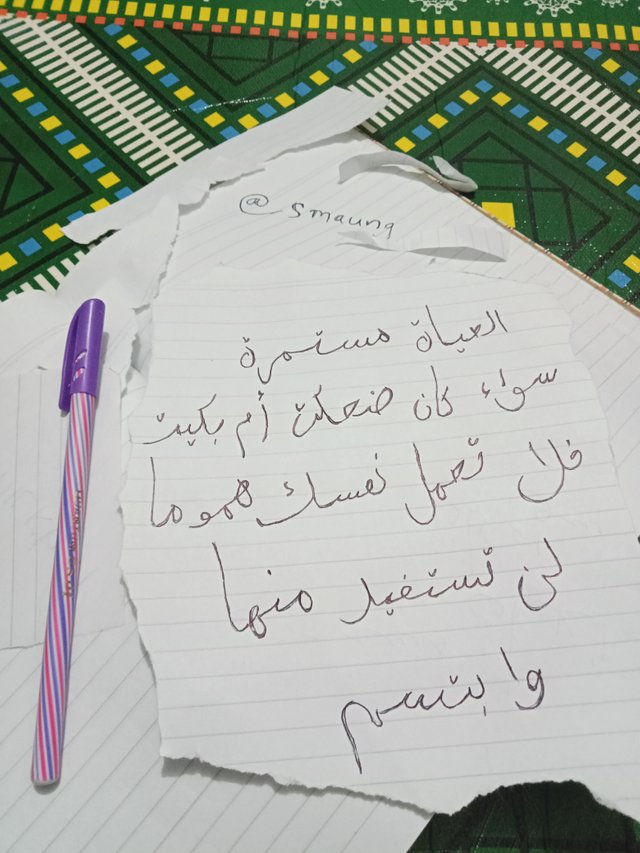 @smaung
الحياة مستمرة
سواء كان ضحكت أم بكيت
فلا تحمل نفسك هموما
لن تستفيد منها
وابتسم